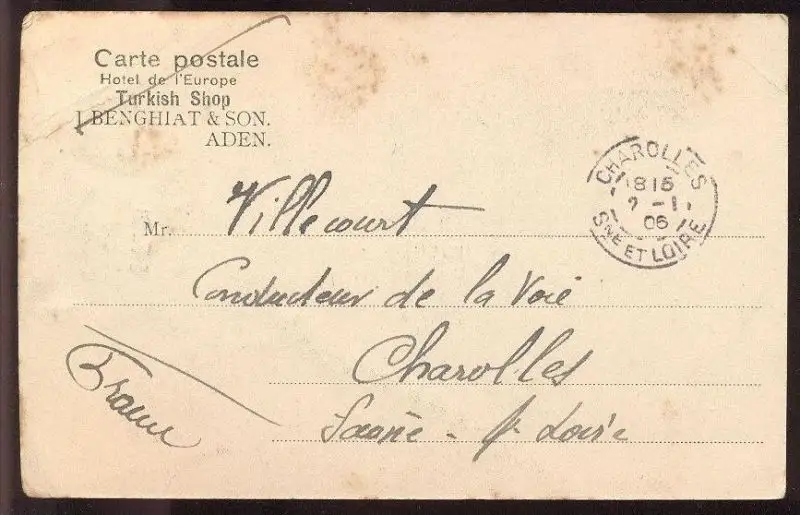 Carte postale
Hotel de l'Europe
Turkish Shop
J. BENGHIAT & SON.
ADEN.
CHAROLLES
815
-1
06
SNE ET LOIRE
Mr. Villecourt
Conducteur de la Voie
Charolles
Saône - & Loire
France